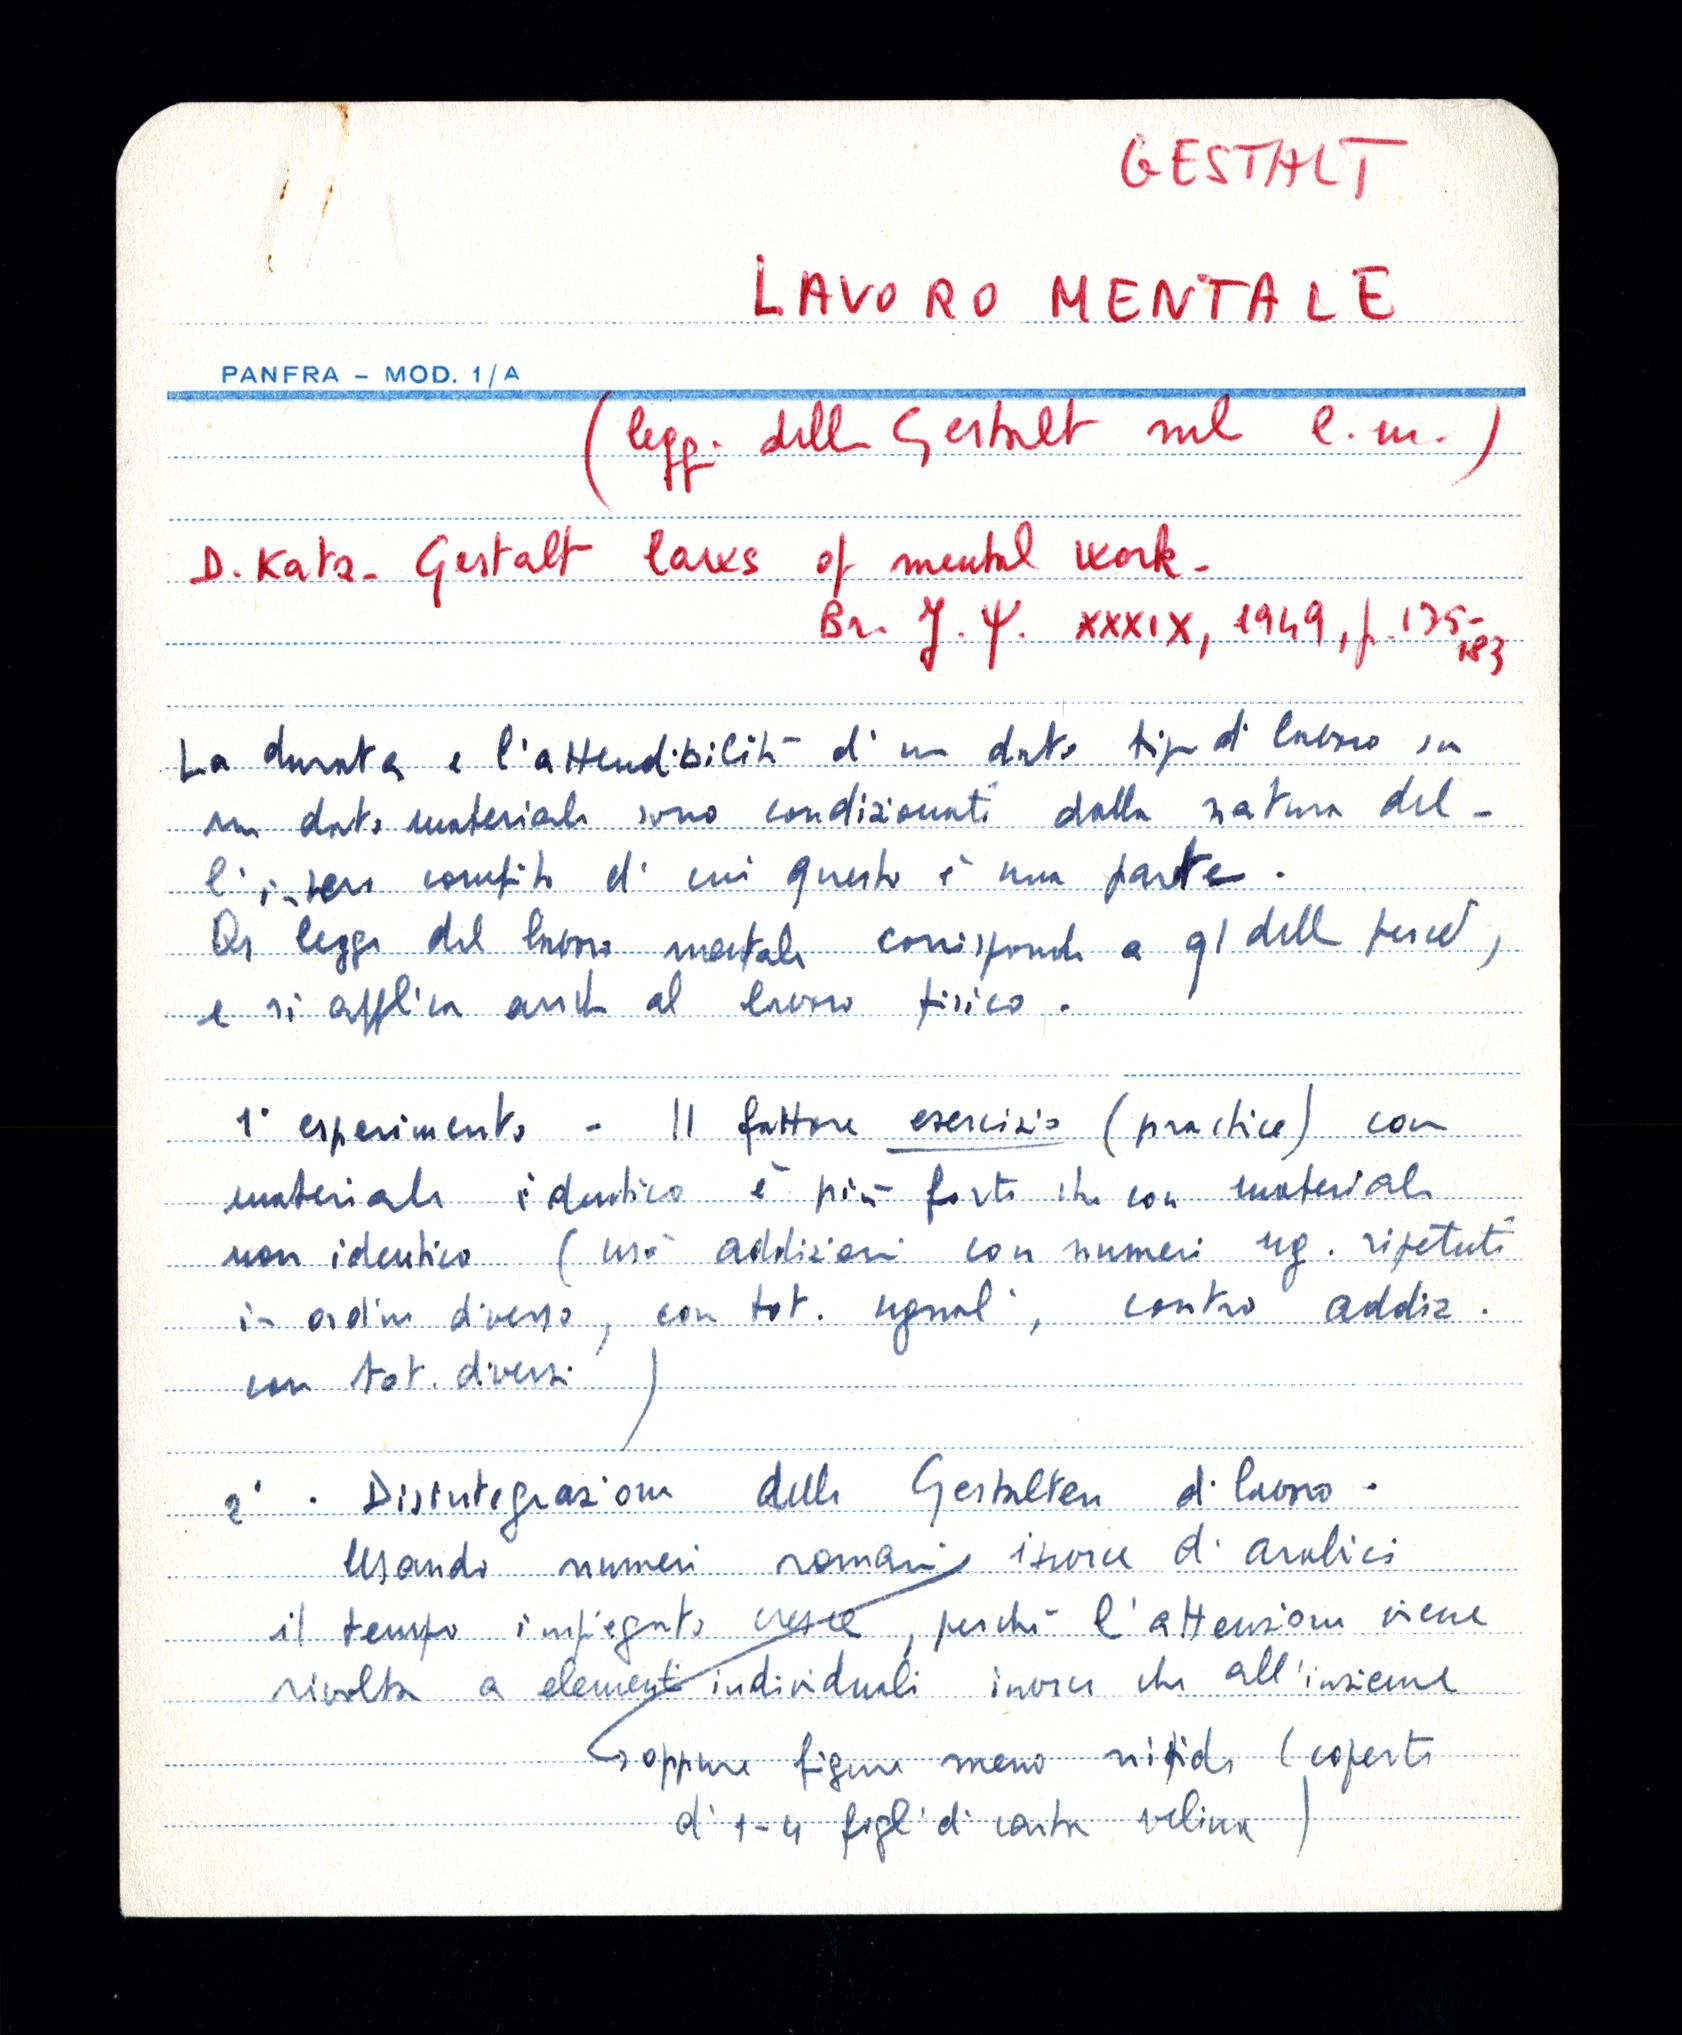 GESTALT
LAVORO MENTALE
PANFRA – MOD. 1/A
(leggi della Gestalt sul l.m.)
D. Katz - Gestalt laws of mental work -
Br. J. Ψ. XXXIX, 1949, p. 175-
183
La durata e l'attendibilità di un dato tipo di lavoro su
un dato materiale sono condizionati dalla natura del-
l'intero compito di cui questo è una parte.
Qs legge del lavoro mentale corrisponde a ql della perce,
e si applica anche al lavoro fisico.
1° esperimento - Il fattore esercizio (practice) con
materiale identico è più forte che con materiale
non identico (usò addizioni con numeri ug. ripetuti
in ordine diverso, con tot. uguali, contro addiz.
con tot. diversi)
2° . Disintegrazione delle Gestalten di lavoro.
Usando numeri romani invece di arabici
il tempo impiegato cresce, perché l'attenzione viene
rivolta a elementi individuali invece che all'insieme
oppure figure meno nitide (coperte
di 1-4 fogli di carta velina)